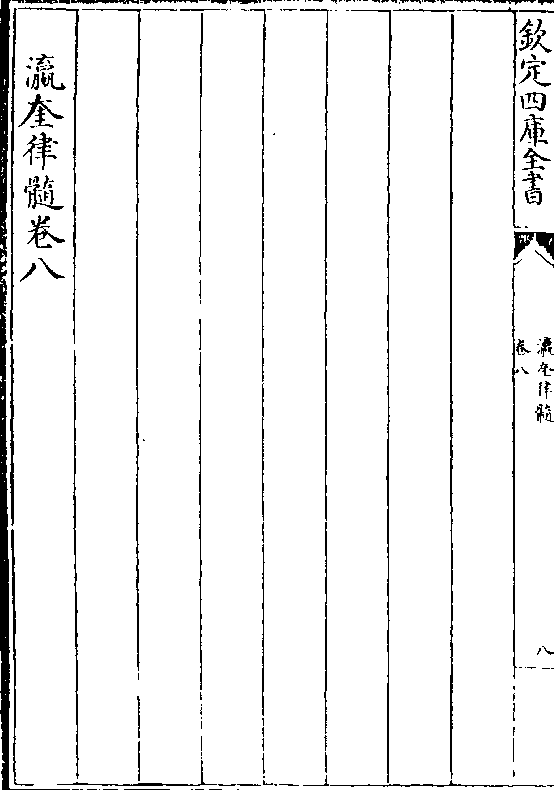 欽定四庫全書
瀛奎律髓
卷八
八
瀛奎律髓卷八